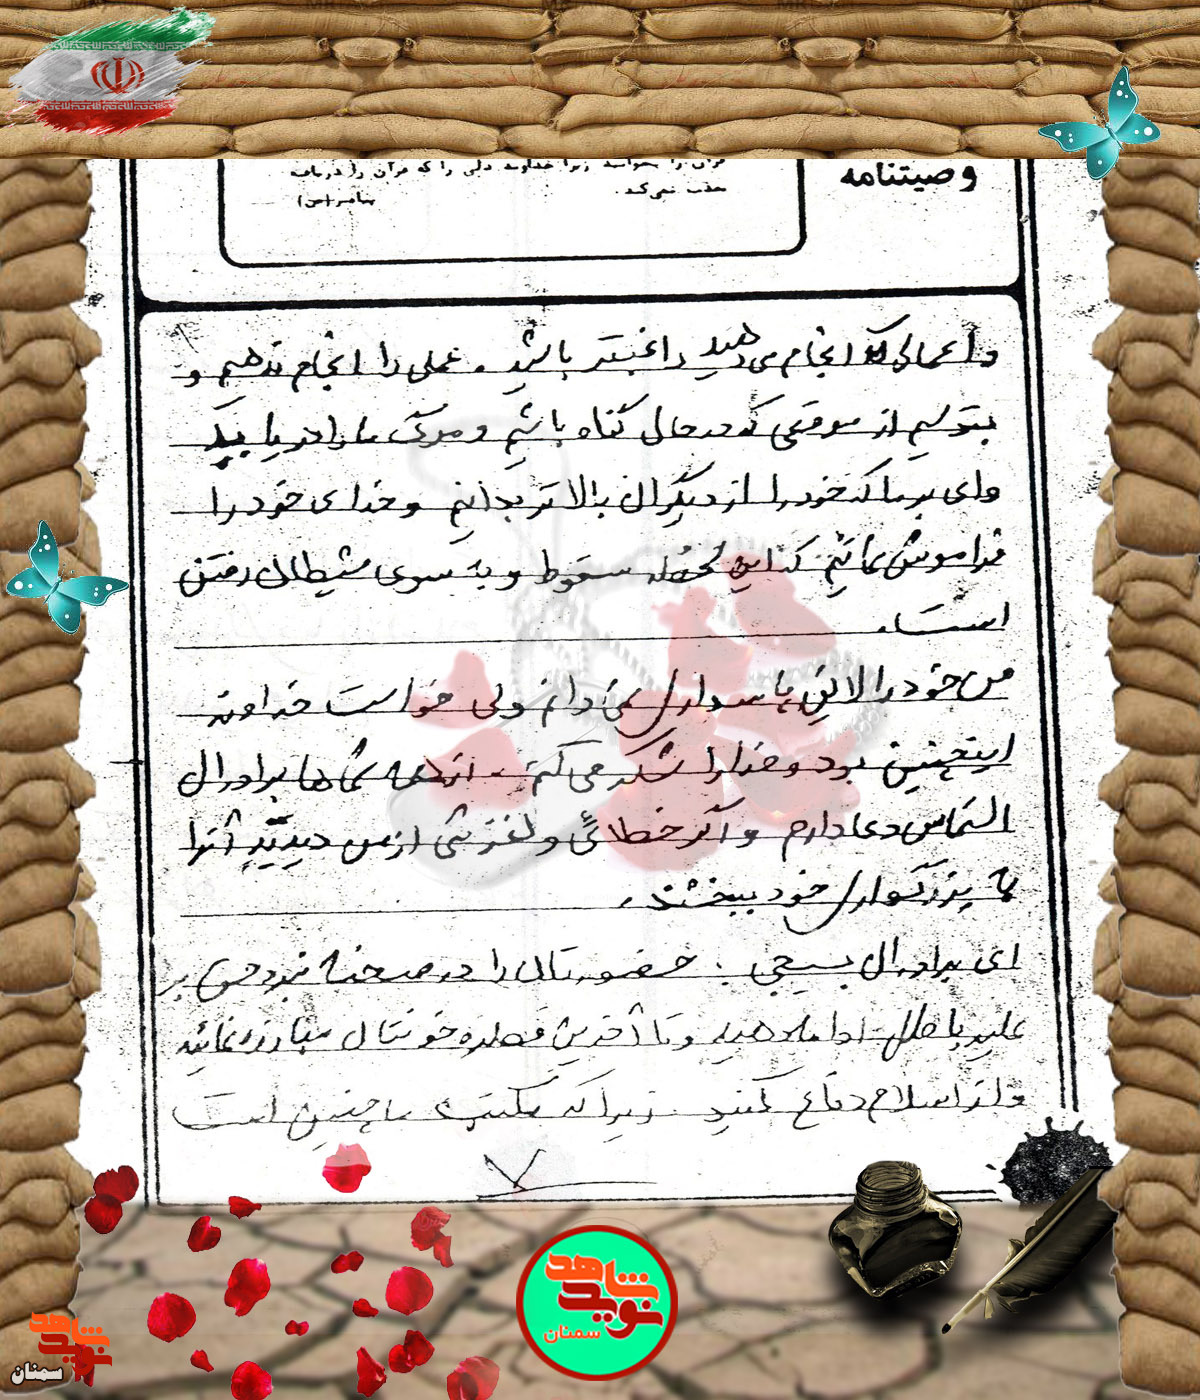 قرآن را بخوانید زیرا خداوند دلی را که قرآن را دریافته
عذب نمی‌کند.
پیامبر(ص)
وصیتنامه
و اعمالی که انجام می‌دهید راغبتر باشید. عملی را انجام ندهیم و
بترسیم از موقعی که در حال گناه باشیم و مرگ ما را دریابد
وای بر ما که خود را از دیگران بالاتر بدانیم و خدای خود را
فراموش نمائیم که این لحظه سقوط و به سوی شیطان رفتن
است.
من خود را لایق پاسدار نمی‌دانم ولی خواست خداوند
اینچنین بود و خدا را شکر می‌کنم. از همه شماها برادران
التماس دعا دارم و اگر خطائی و لغزشی از من دیدید آنها
به بزرگواری خود ببخشید.
ای برادران بسیجی. حضورتان را در صحنه نبرد حق بر
علیه باطل ادامه دهید و تا آخرین قطره خونتان مبارزه نمائید
و از اسلام دفاع کنید زیرا که مکتب ما چنین است
۷
شاهد
نوید
سمنان
شاهد
نوید
سمنان